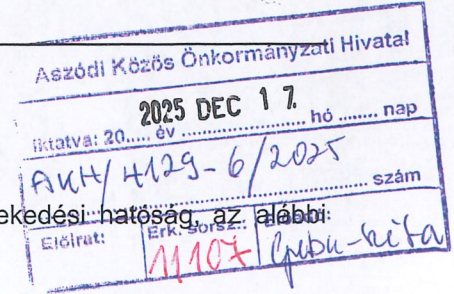 Aszódi Közös Önkormányzati Hivatal
2025 DEC 17.
iktatva: 20..... év .................... hó ........ nap
AKH/4129-6/2025
.................... szám
ekedési hatóság, az alábbi
Előirat: Érk. sorsz.: Előadó:
11107